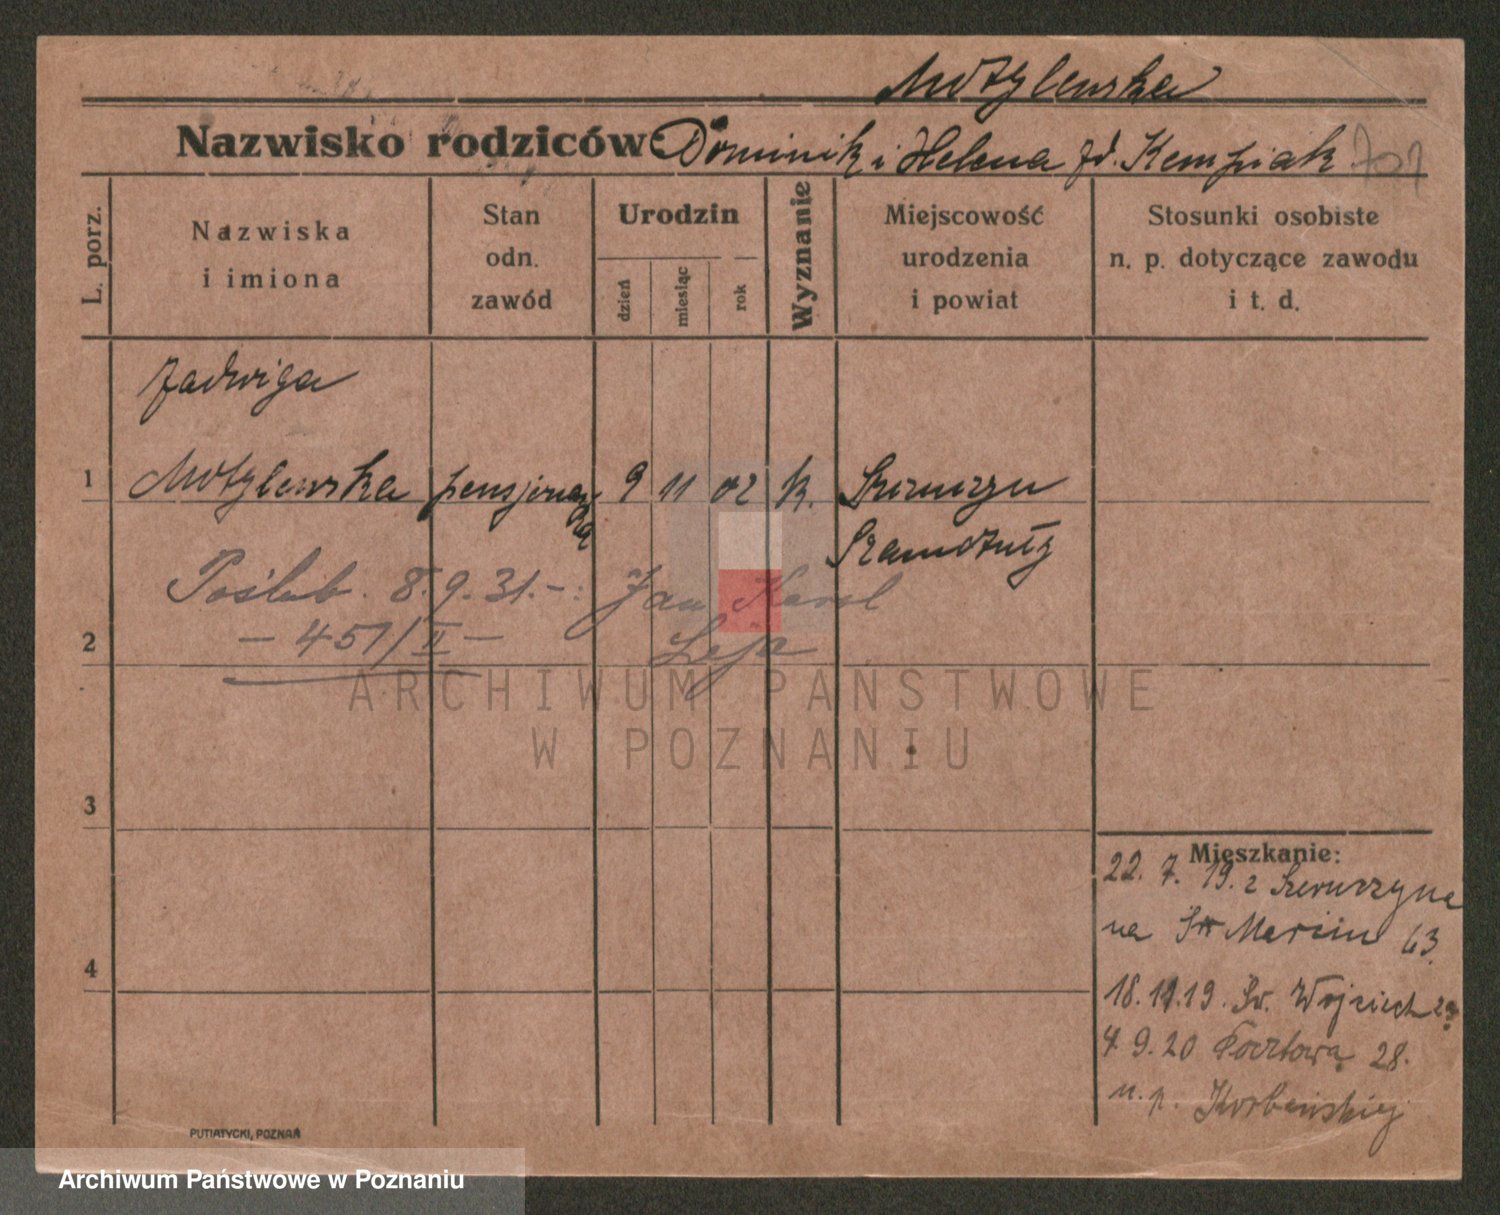 Motylewska
Nazwisko rodziców Dominik i Helena zd. Kempiak 707
L. porz.
Nazwiska
i imiona
Stan
odn.
zawód
Urodzin
dzień
miesiąc
rok
Wyznanie
Miejscowość
urodzenia
i powiat
Stosunki osobiste
n. p. dotyczące zawodu
i t. d.
Jadwiga
1 Motylewska pensjonarka 9 11 02 k.
Szamotuły
Poślub. 8.9.31.-: Jan Karol
2 - 451/II - Leja
3
4
Mieszkanie:
22. 7. 19. z
na Św Marcin 63.
18.11.19. Św. Wojciech
4 9.20 Pocztowa 28.
u. p.
PUTIATYCKI, POZNAŃ
ARCHIWUM PAŃSTWOWE
W POZNANIU
Archiwum Państwowe w Poznaniu